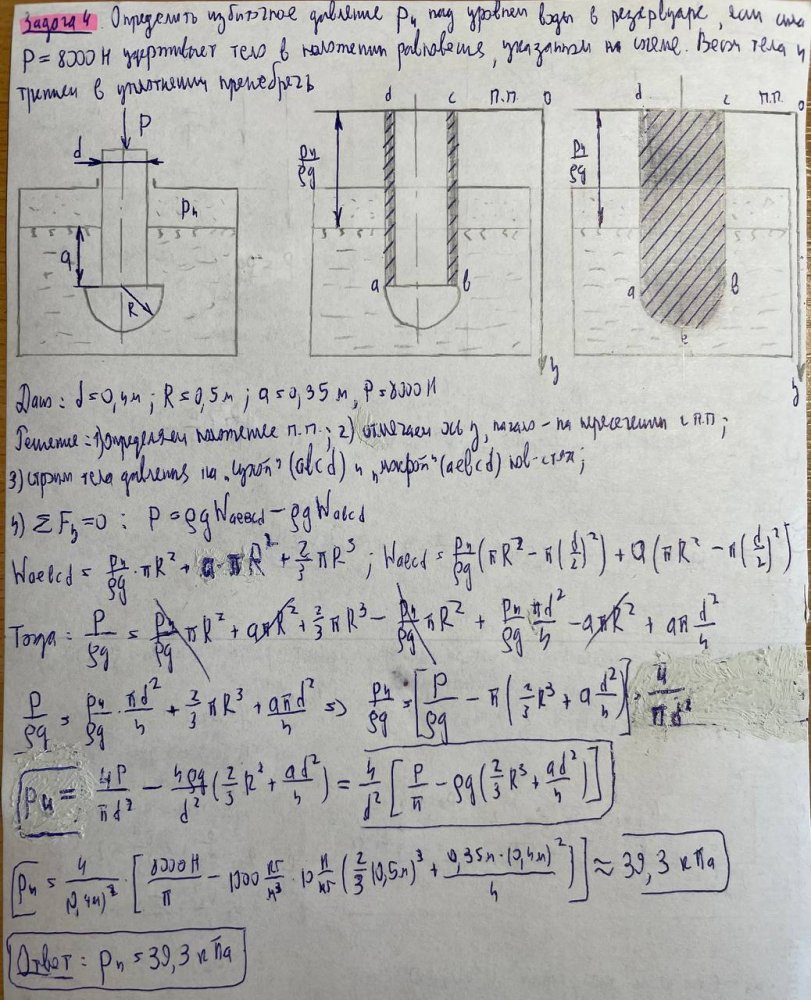 Задача 4 Определить избыточное давление Pи над уровнем воды в резервуаре, если сила
P = 8000 Н удерживает тело в положении равновесия, указанном на схеме. Весом тела и
трением в уплотнении пренебречь
P
d
Pи
a
R
d c П.П. 0
Pи/ρg
a b
z
d c П.П. 0
Pи/ρg
a b
e
z
Дано: d=0,4м; R=0,5м; a=0,35м, P=8000Н
Решение: 1) определяем положение П.П.; 2) отмечаем ось z, начало - на пересечении с П.П;
3) строим тела давления на "сухой" (abcd) и "мокрой" (aebcd) пов-стях;
4) ΣFz=0 : P = ρgWaebcd - ρgWabcd
Waebcd = Pи/ρg · πR² + a·πR² + 2/3 πR³ ; Waebcd = Pи/ρg (πR² - π(d/2)²) + a(πR² - π(d/2)²)
Тогда: P/ρg = Pи/ρg πR² + aπR² + 2/3 πR³ - Pи/ρg πR² + Pи/ρg πd²/4 - aπR² + aπ d²/4
P/ρg = Pи/ρg · πd²/4 + 2/3 πR³ + aπd²/4 => Pи/ρg = [P/ρg - π(2/3 R³ + a d²/4)] · 4/πd²
Pи = 4P/πd² - 4ρg/d² (2/3 R³ + ad²/4) = 4/d² [P/π - ρg(2/3 R³ + ad²/4)]
Pи = 4/(0,4м)² · [8000Н/π - 1000 кг/м³ · 10 Н/кг (2/3 (0,5м)³ + 0,35м·(0,4м)²/4)] ≈ 39,3 кПа
Ответ: Pи = 39,3 кПа